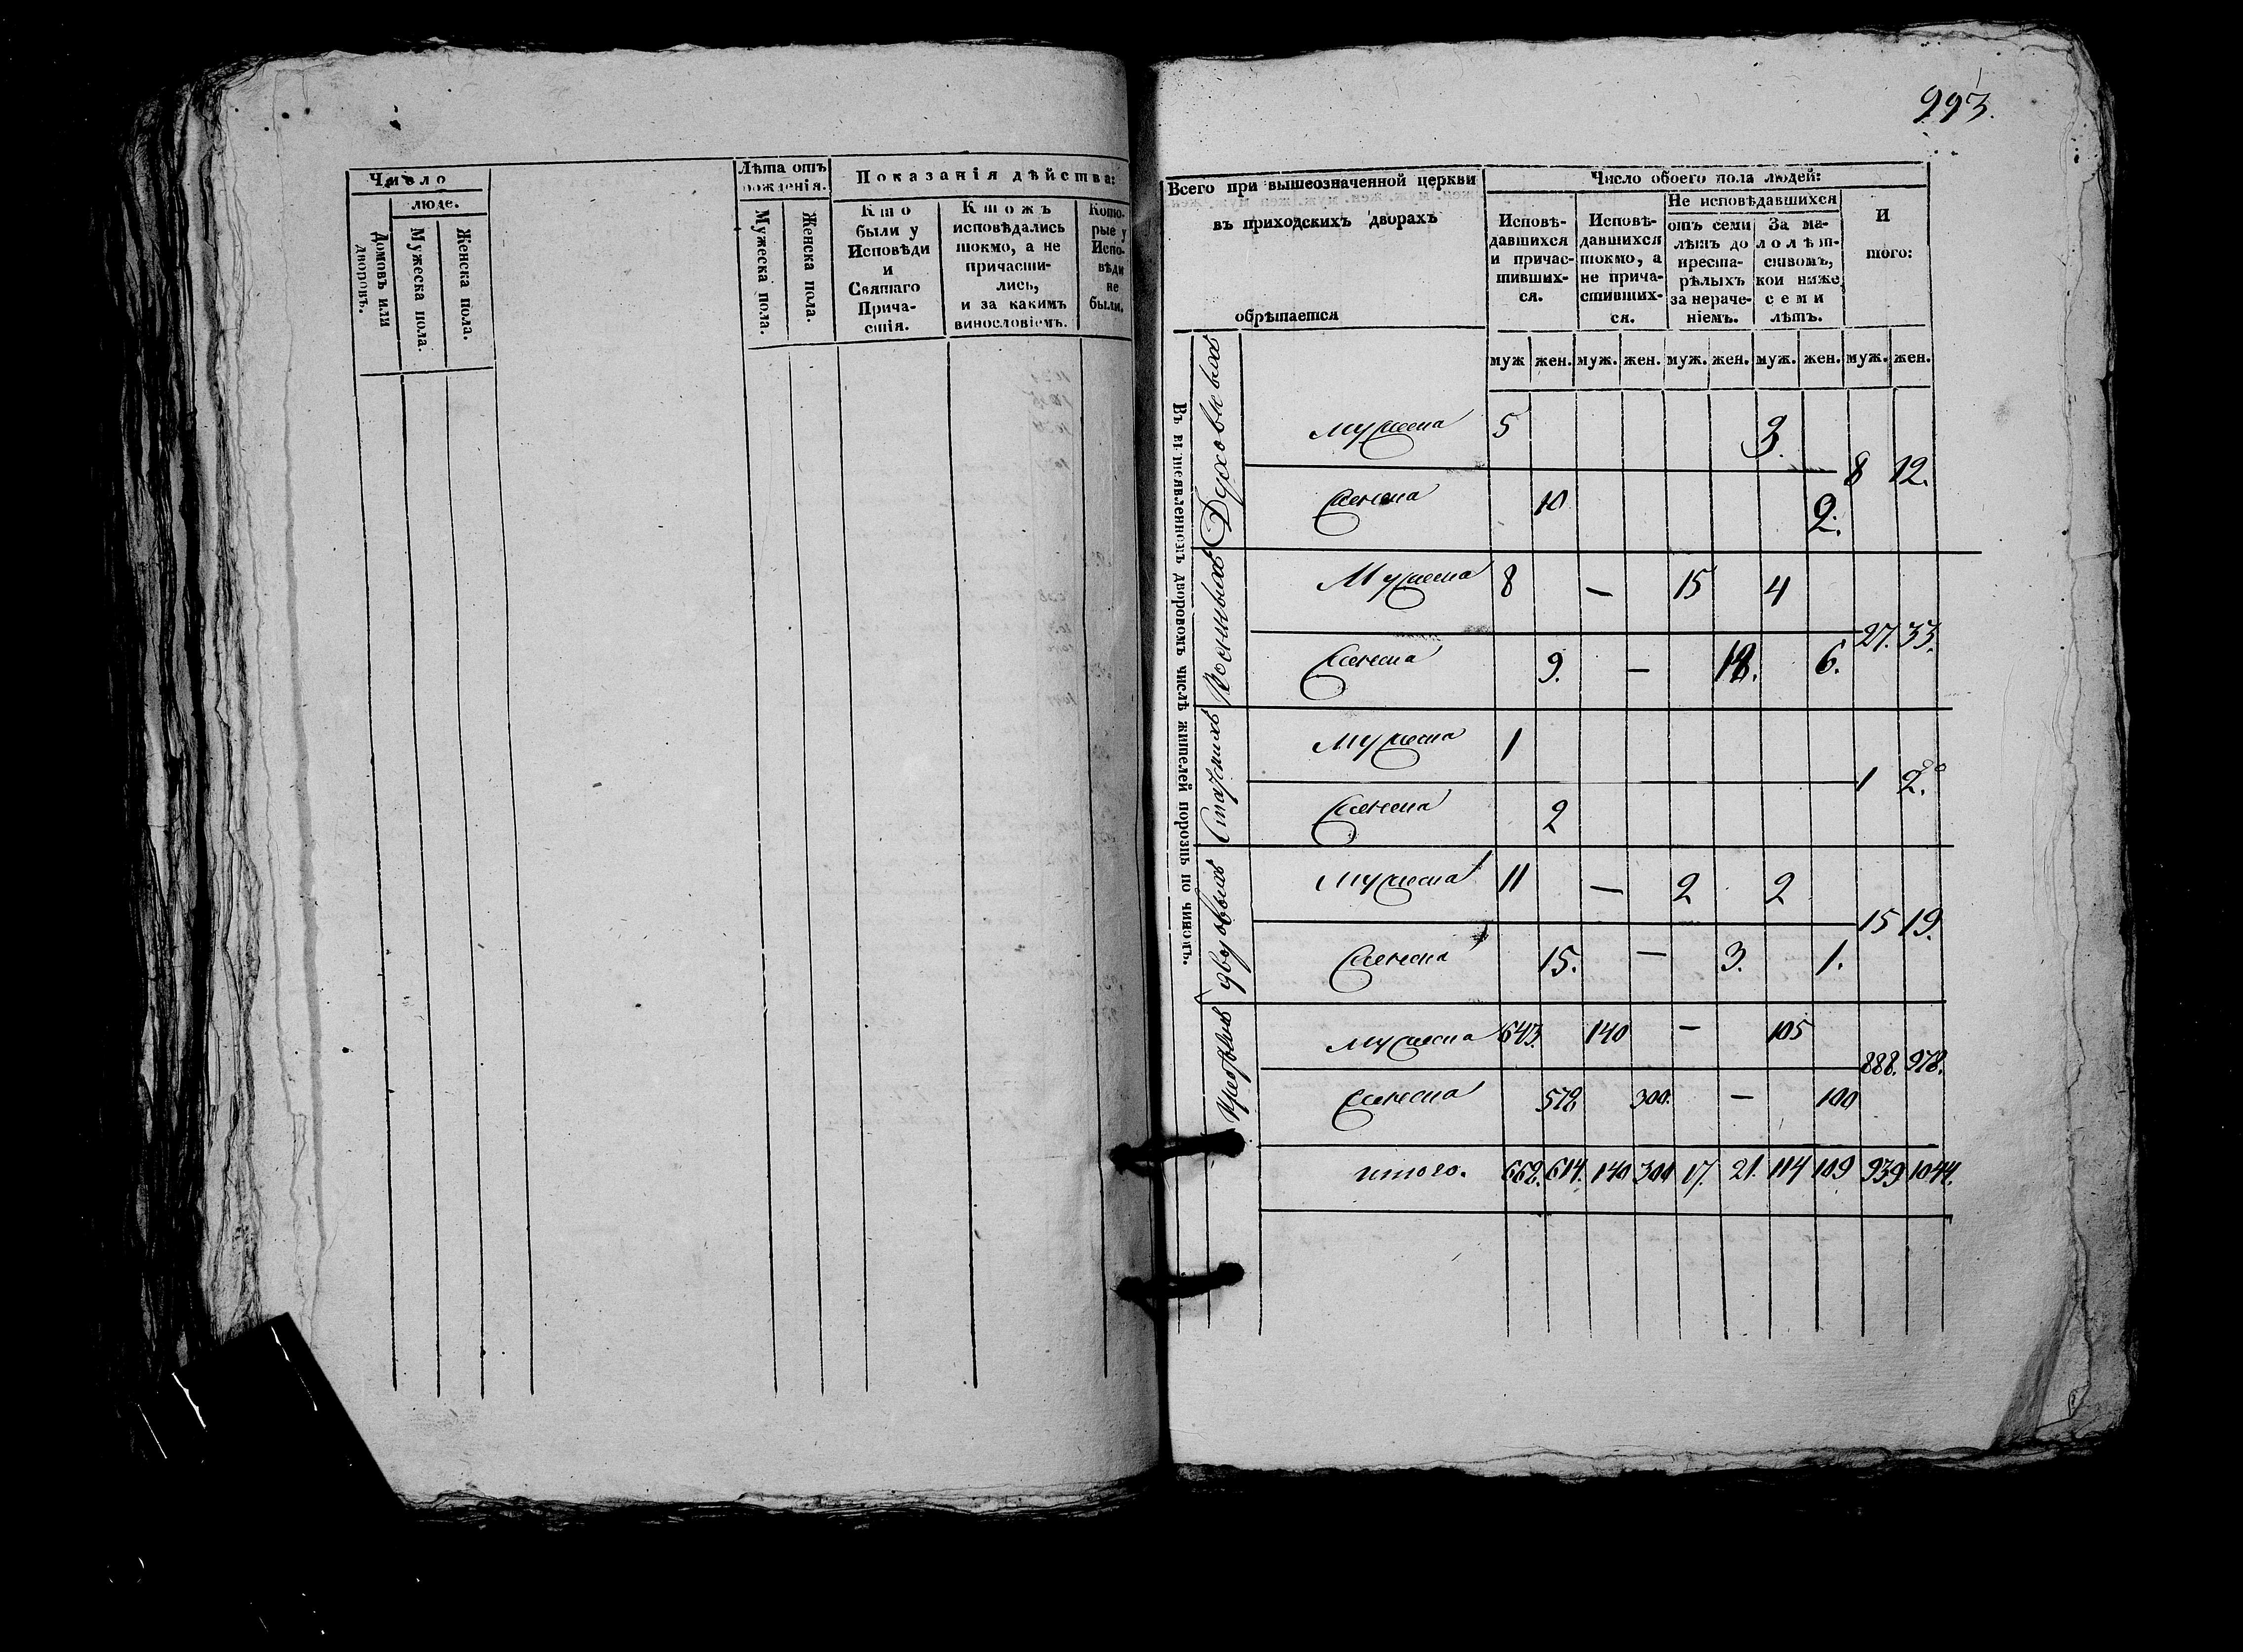 Число
люде.
Домовъ или дворовъ.
Мужеска пола.
Женска пола.
Лѣта отъ рожденія.
Мужеска пола.
Женска пола.
Показанія дѣйства:
Кто были у Исповѣди и Святаго Прича-стія.
Ктожъ исповѣдались токмо, а не причасти-лись, и за какимъ винословіемъ.
Кото-рые у Испо-вѣди не были.
993.
Всего при вышеозначенной церкви
въ приходскихъ дворахъ
обрѣтается
Число обоего пола людей:
Исповѣ-давшихся и причас-тивших-ся.
Исповѣ-давшихся токмо, а не прича-стивших-ся.
Не исповѣдавшихся
отъ семи лѣтъ до преста-рѣлыхъ за нераче-ніемъ.
За ма-лолѣт-ствомъ, кои ниже семи лѣтъ.
И того:
муж жен. муж. жен. муж. жен. муж. жен. муж. жен.
Въ вышеявленномъ дворовомъ числѣ жителей порознь по чиномъ.
Духовныхъ
мужеска 5 3.
8 12.
женска 10 2.
Военныхъ
Мужеска 8 — 15 4
27. 33.
женска 9. — 18. 6.
Статскихъ
мужеска 1
1 2.
женска 2
дворовыхъ
мужеска 11 — 2 2
15 19.
женска 15. — 3. 1.
мужеска 643. 140 — 105
888. 978.
женска 578 300. — 100
итого. 668. 614. 140 300 17. 21. 114 109 939 1044.